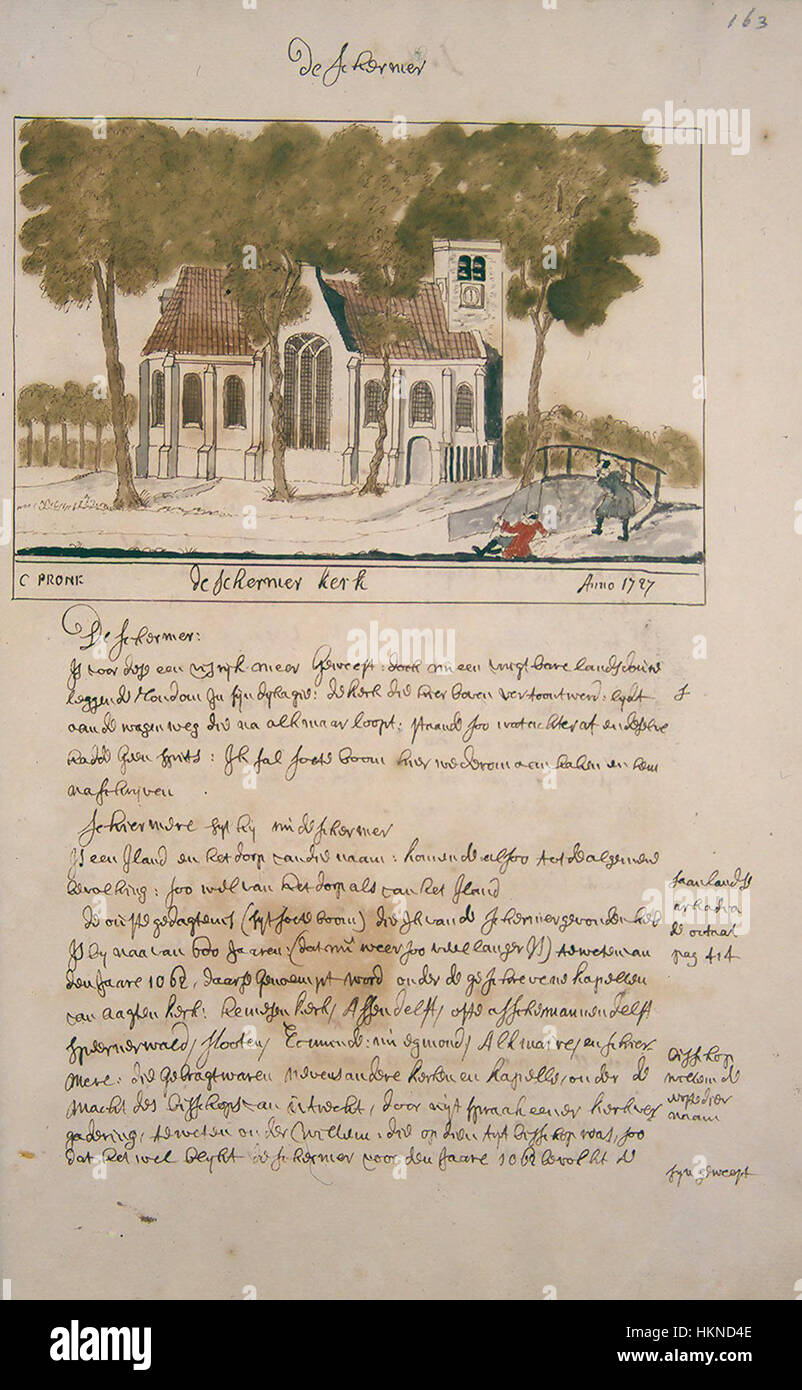 163
De Schermer
C PRONK
de schermer kerk
Anno 1727
De Schermer:
Is voor dese een visrijk meer Geweest: dock nu een vrugtbare landsdouwe
leggende Rondom In sijn dijkagie: de kerk die hier boven vertoont werd: lydt
aan de wagen weg die na alkmaar loopt: staande soo wat achter af en deselve
hadde Geen spits: Ik sal soete boom hier wederom aen halen en hem
na schrijven
Schiermere syt hij nu de schermer
Is een Iland en het dorp van die naam: komende alsoo tot de algemene
bevolking: soo wel van het dorp als van het Iland
de outste gedagtenis (syt soete boom) die Ik van de Schermer gevonden heb
Is by naa van 600 Jaaren: (dat nu weer soo veel langer Is) te weten van
den Jaare 1062, daar se Genoempt word onder de geschrevene kapellen
van aagten kerk: Kemesen kerk, Assendelft, ofte asschemannen delft
spernerwald, slooten, Ecmunde: nu egmond, Alkmaire, en schier
mere: die Gebragt waren nevens andere kerken en kapelle, onder de
macht des bisschops van utrecht, door uyt spraak eener kerkver
gadering, te weten onder Willem: die op dien tyt bisschop was, soo
dat het wel blykt de schermer voor den Jaare 1062 bevolkt te
saanlands
arkadia
pag 414
bisschop
willem de
naam
syn geweest
alamy
Image ID: HKND4E
www.alamy.com